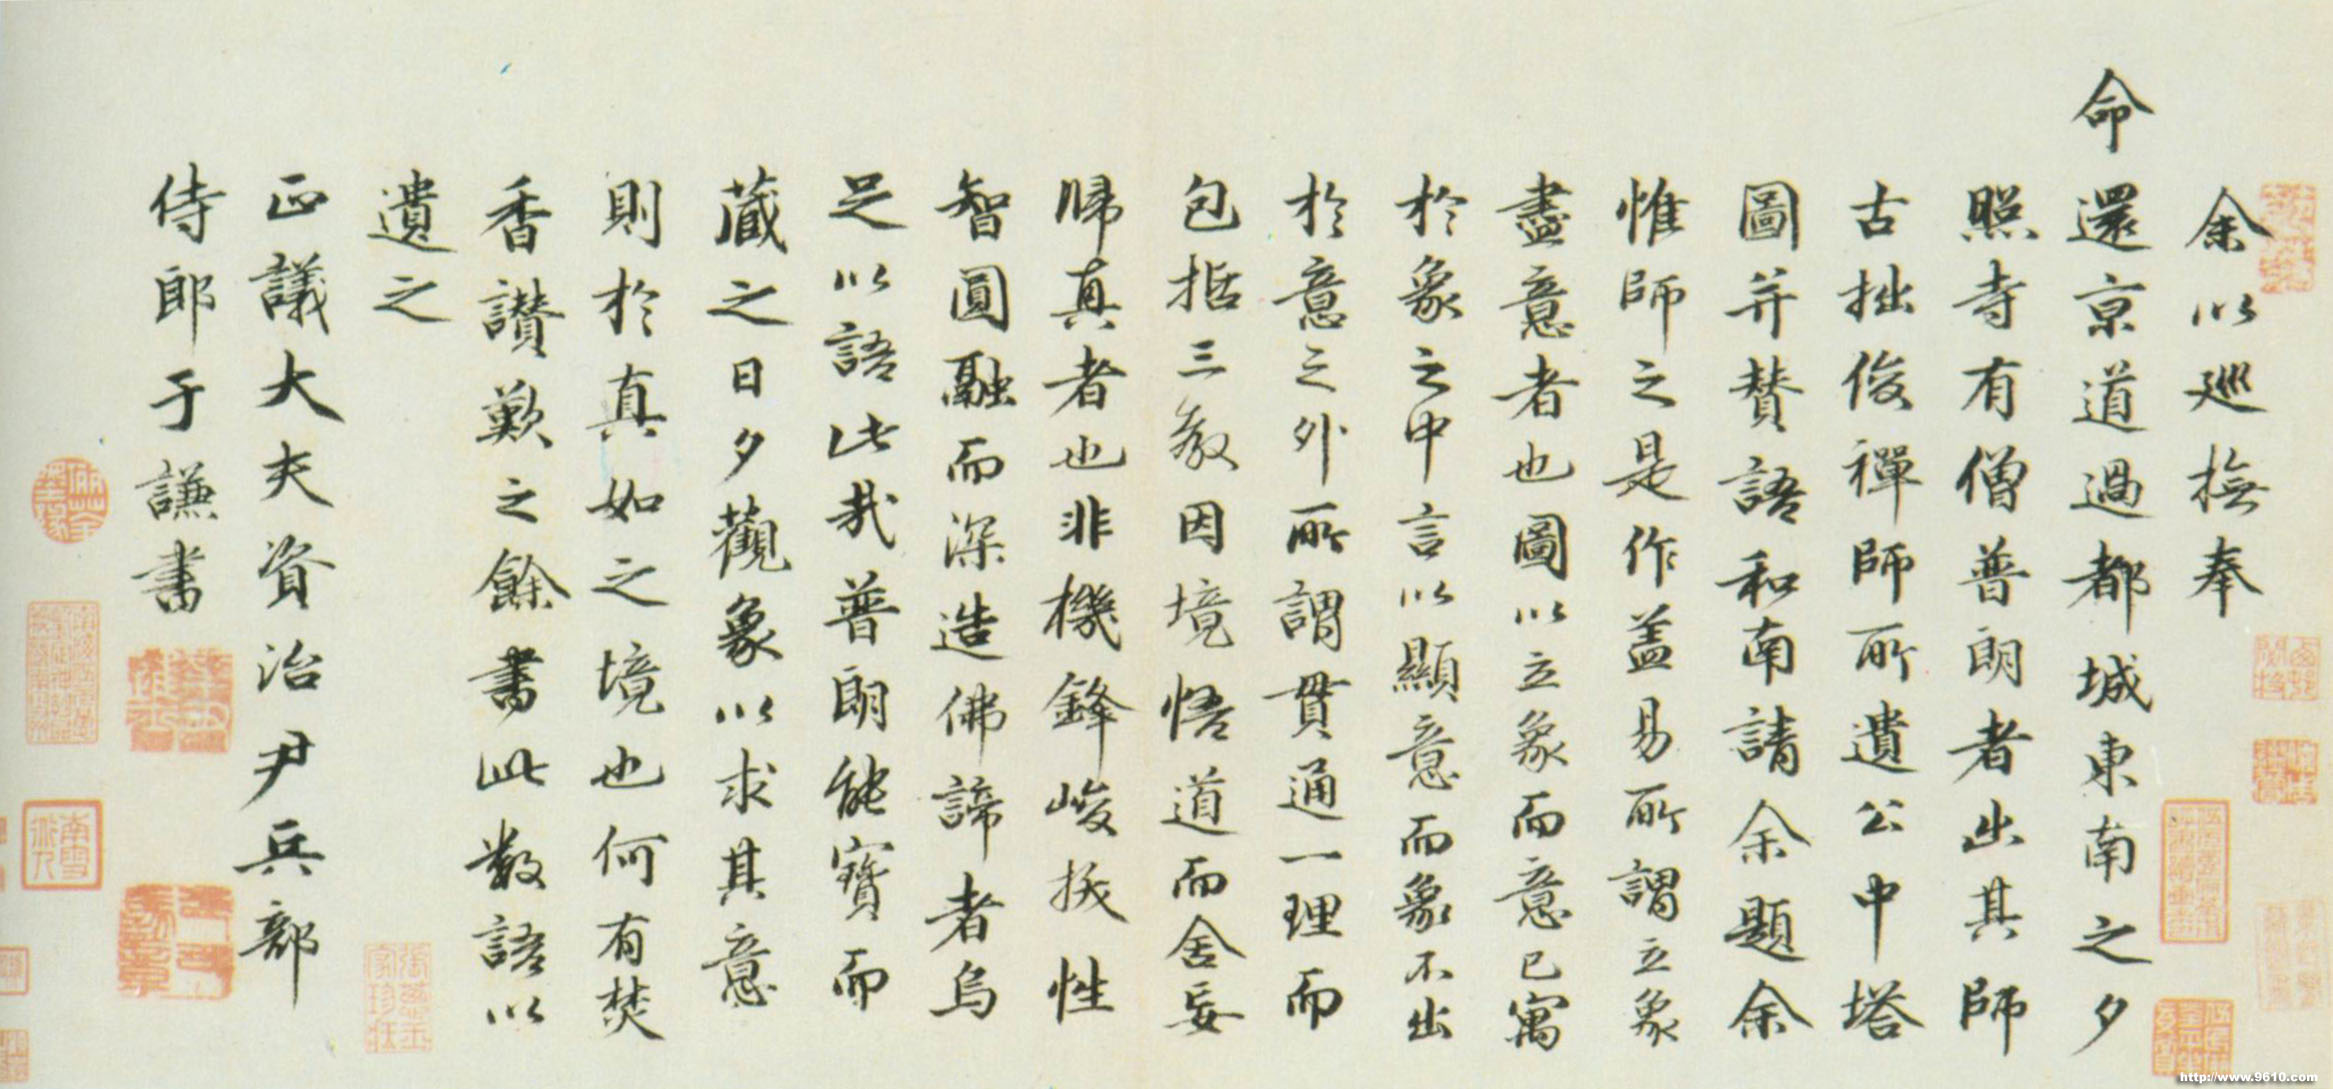 余以巡撫奉
命還京道過都城東南之夕
照寺有僧普朗者出其師
古拙俊禪師所遺公中塔
圖并賛語和南請余題余
惟師之是作盖易所謂立象
盡意者也圖以立象而意已寓
於象之中言以顯意而象不出
於意之外所謂貫通一理而
包括三教因境悟道而舍妄
歸真者也非機鋒峻拔性
智圓融而深造佛諦者烏
足以語此哉普朗能寶而
藏之日夕觀象以求其意
則於真如之境也何有焚
香讃歎之餘書此數語以
遺之
正議大夫資治尹兵部
侍郎于謙書
http://www.9610.com